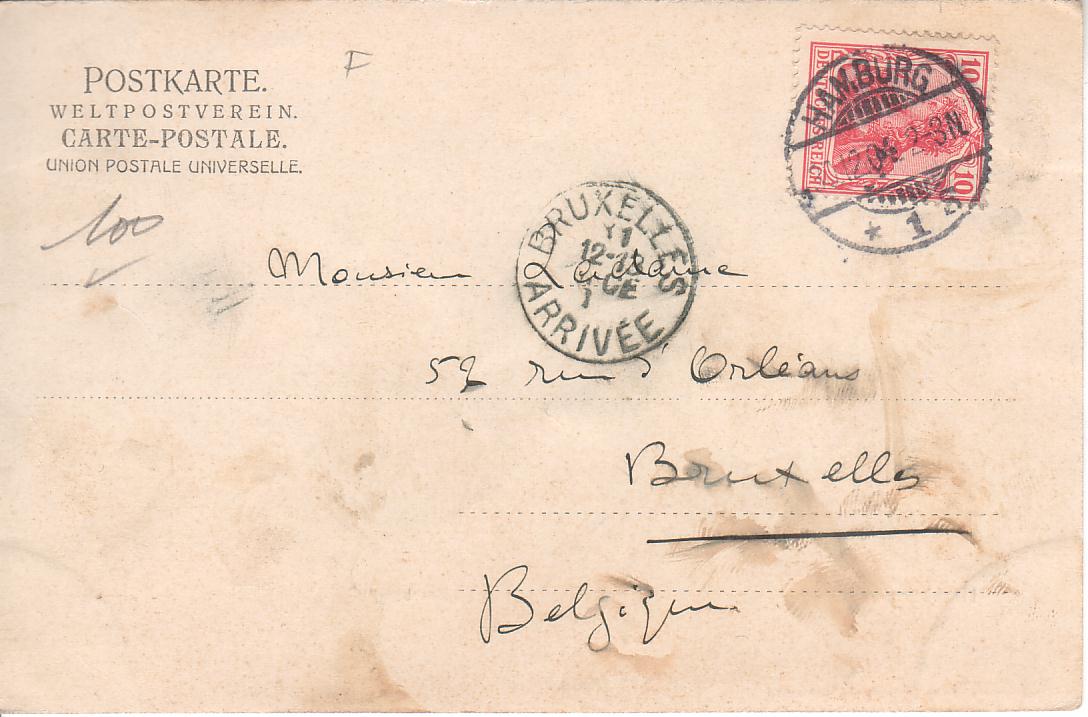 POSTKARTE.
WELTPOSTVEREIN.
CARTE-POSTALE.
UNION POSTALE UNIVERSELLE.
F
100
10 DEUTSCHES REICH 10
HAMBURG
2-3N
* 1 *
BRUXELLES
ARRIVÉE
Monsieur
52 rue d'Orléans
Bruxelles
Belgique